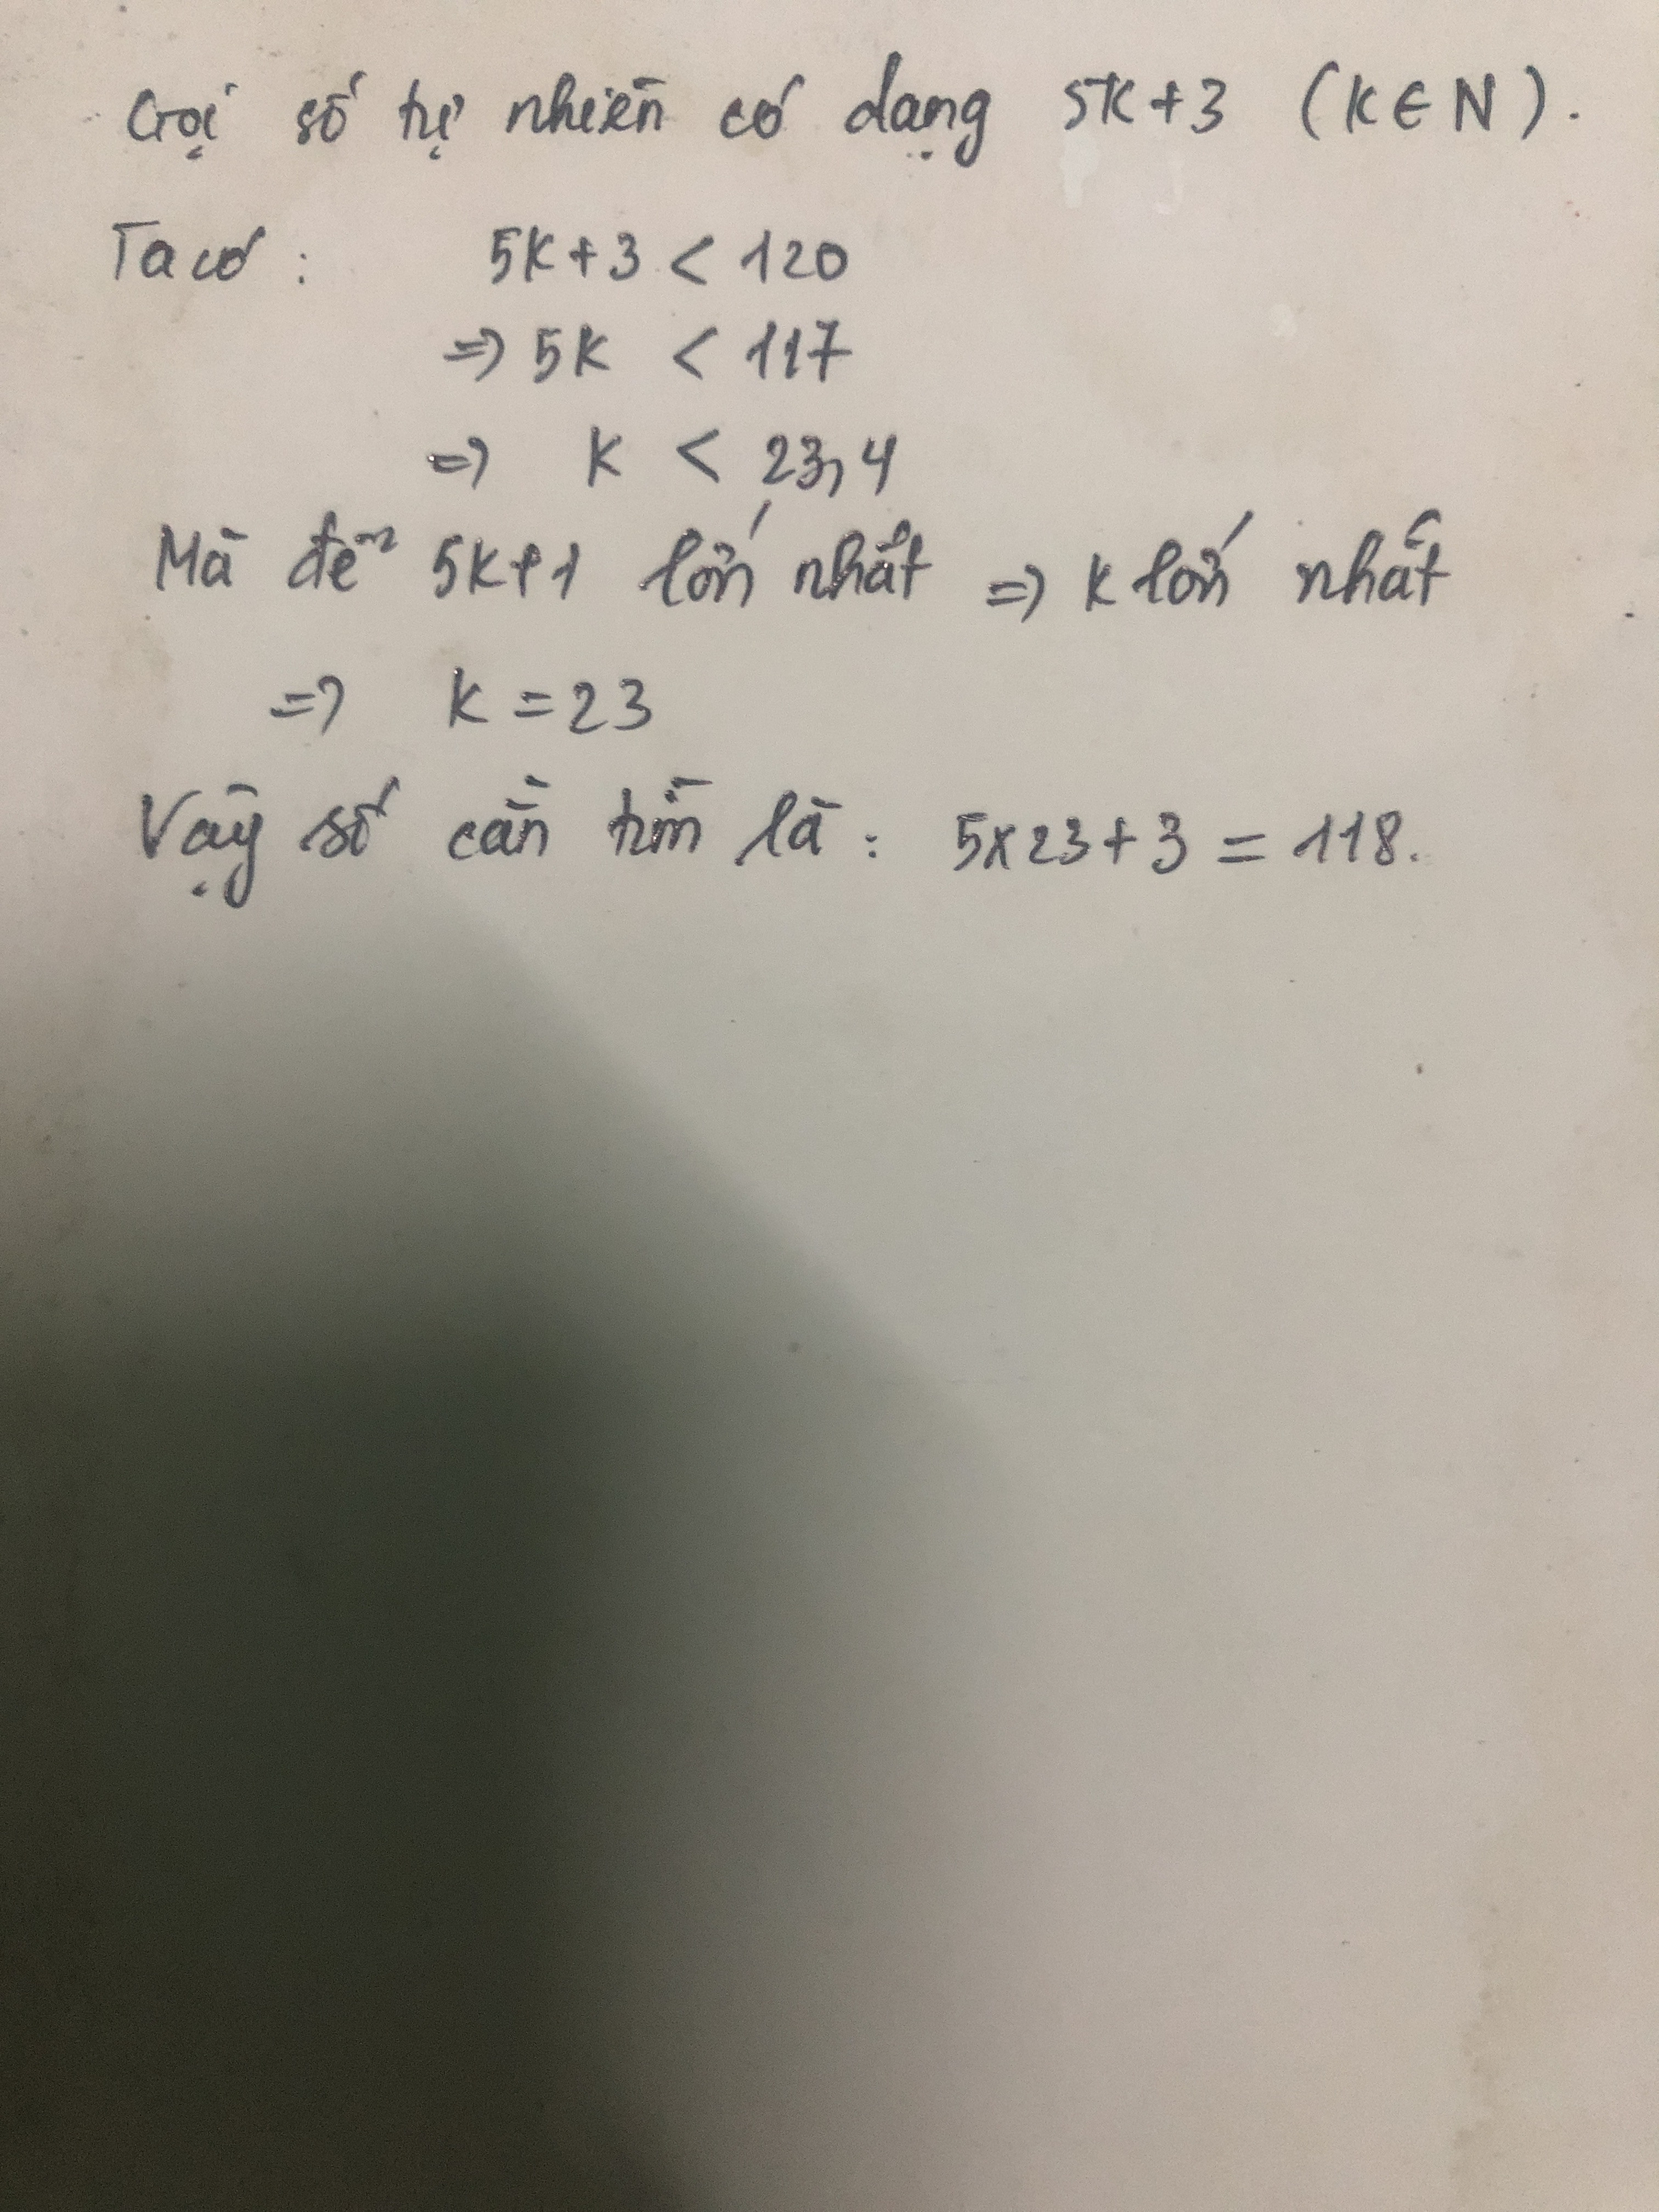 Gọi số tự nhiên có dạng 5k+3 (k∈N).
Ta có : 5k+3 < 120
=> 5k < 117
=> k < 23,4
Mà để 5k+1 lớn nhất => k lớn nhất
=> k = 23
Vậy số cần tìm là : 5x23+3 = 118.